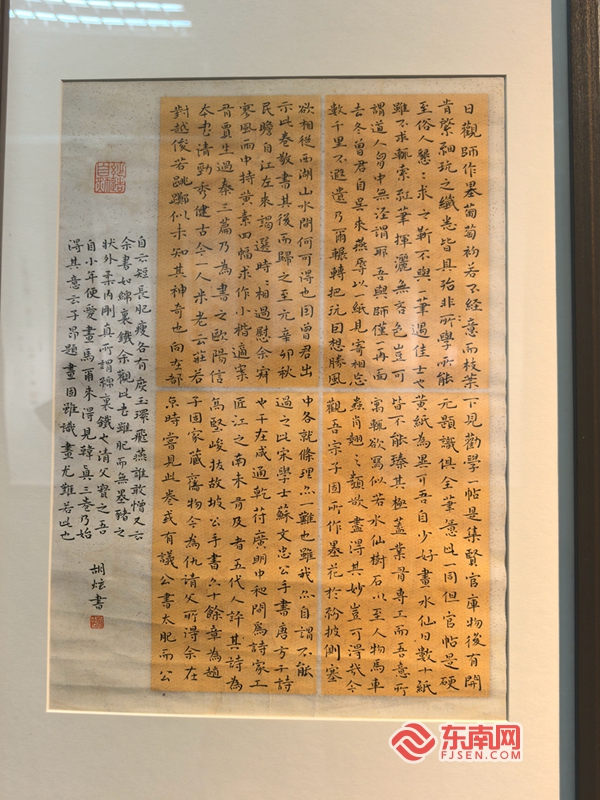 日觀師作墨葡萄初若不經意而枝葉
肯綮細玩之纖悉皆具殆非所學所能
至俗人懇〻求之靳不與一筆遇佳士
雖不求輒索紙筆揮灑無吝色豈可
謂道人胸中無涇渭耶吾與師僅一再面
去冬曾君自吳來燕辱以一紙見寄相忘
數千里不遐遺乃爾輾轉把玩因想勝風
欲相從西湖山水間何可得也因曾君出
示此卷敬書其後而歸之至元辛卯秋
民瞻自江左來謁選時〻相過慰余寂
寥風雨中持黃素四幅求作小楷適案
有賈生過秦三篇乃為書之歐陽信
本書清勁秀健古今一人米老云莊若
對越俊若跳擲似未知其神奇也向在部
下見勸學一帖是集賢官庫物後有開
元題識俱全筆意與此一同但官帖是硬
黃紙為異耳吾自少好畫水仙日數十紙
皆不能臻其極蓋業有專工而吾意所
寓輒欲寫似若水仙樹石以至人物馬車
蟲肖翹之類欲盡得其妙豈可得哉今
觀吾宗子固所作墨花於紛披側塞
中各就條理亦一難也雖我亦自謂不能
過之此宋學士蘇文忠公手書唐方干詩
也干在咸通乾符廣明中和間為詩家工
匠江之南未有及者五代人評其詩為
無堅峻拔故坡公手書六十餘章為趙
子固家藏舊物今為仇請父所得余在
京時嘗見此卷或有議公書太肥而公
自云短長肥瘦各有度玉環飛燕誰敢憎又云
余書如綿裹鐵余觀此書雖肥而無墨豬之
狀外柔內剛真所謂綿裹鐵也請父寶之吾
自小年便愛畫馬爾來得見韓真三卷乃始
得其意云子昂題畫固雖識畫尤難若此也
胡炫書
东南网
FJSEN.COM